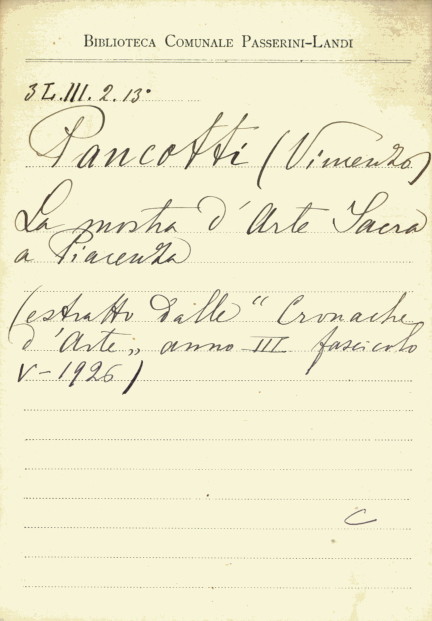 BIBLIOTECA COMUNALE PASSERINI-LANDI
3L.III.2.13°
Pancotti (Vincenzo)
La mostra d'Arte Sacra
a Piacenza
(estratto dalle "Cronache
d'Arte„ anno III fascicolo
V-1926)
C